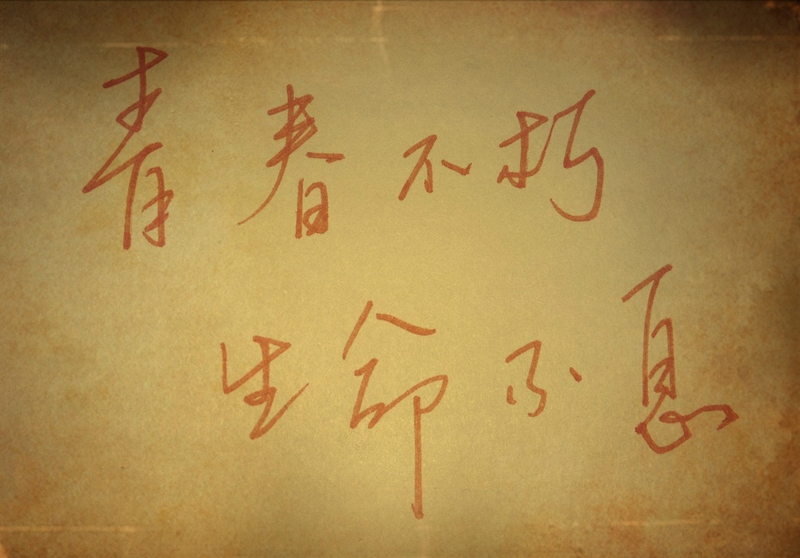 青春不朽
生命不息